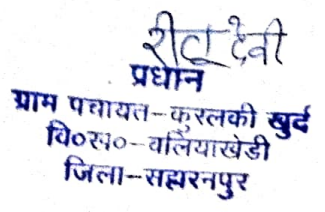 रीटा देवी
प्रधान
ग्राम पंचायत-कुरलकी खुर्द
वि०ख०-बलियाखेडी
जिला-सहारनपुर